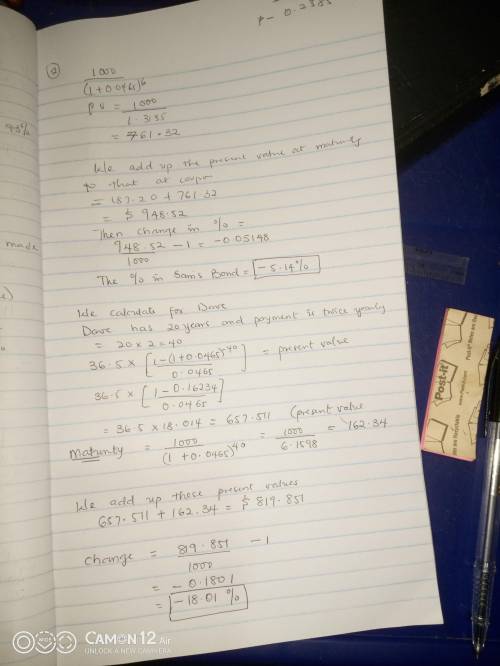 P - 0.2385
②
1000
(1+0.0465)6
PV = 1000
1.3135
= 761.32
We add up the present value at maturity
to that at coupon
= 187.20 + 761.32
= $ 948.52
Then change in % =
948.52 - 1 = -0.05148
1000
The % in Sams Bond = -5.14%
We calculate for Dave
Dave has 20 years and payment is twice yearly
= 20 x 2 = 40
36.5 x [1-(1+0.0465)-40] = present value
0.0465
36.5 x [1-0.16234]
0.0465
= 36.5 x 18.014 = 657.511 (present value
Maturity = 1000 = 1000 = 162.34
(1+0.0465)40 6.1598
We add up these present values
657.511 + 162.34 = $ 819.851
Change = 819.851 - 1
1000
= -0.1801
= -18.01 %
93%
made
Post-it
CAMON 12 Air
UNLOCK A NEW CAMERA